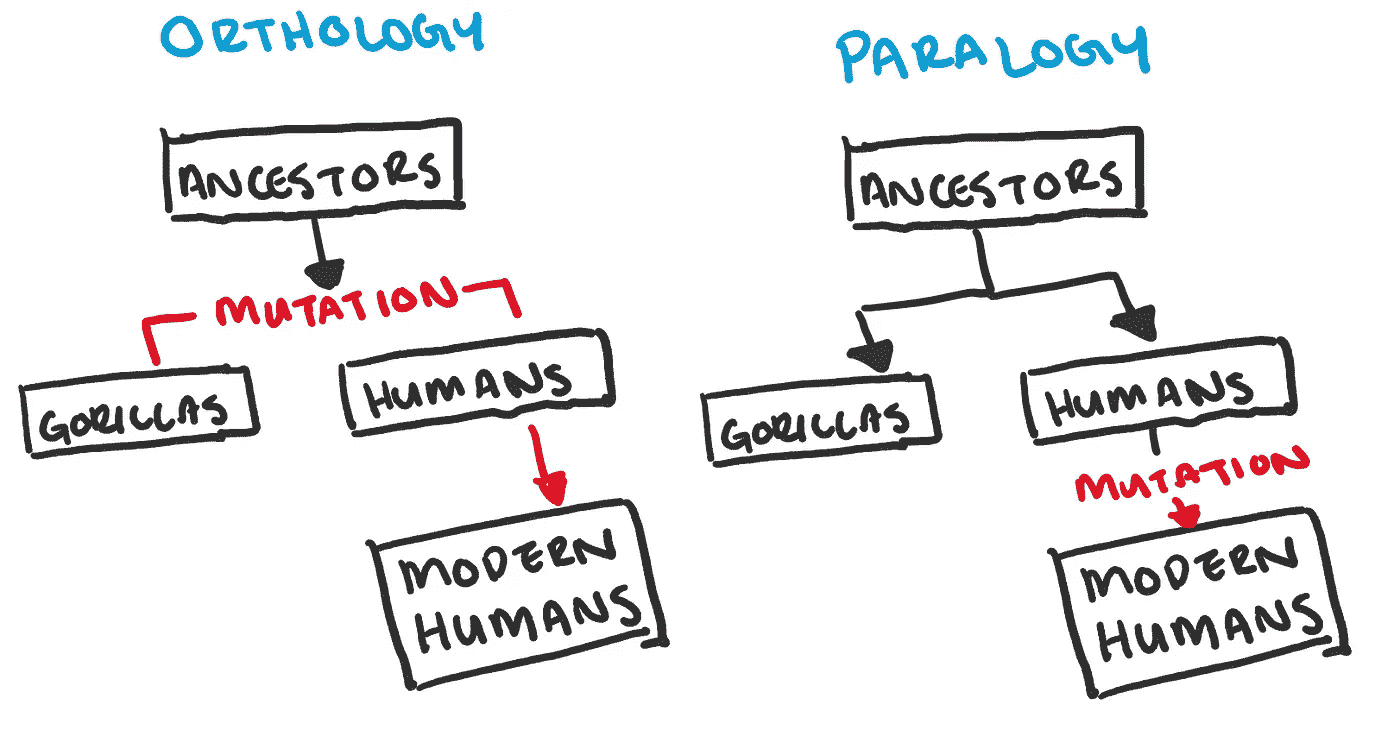 ORTHOLOGY
ANCESTORS
MUTATION
GORILLAS
HUMANS
MODERN
HUMANS
PARALOGY
ANCESTORS
GORILLAS
HUMANS
MUTATION
MODERN
HUMANS